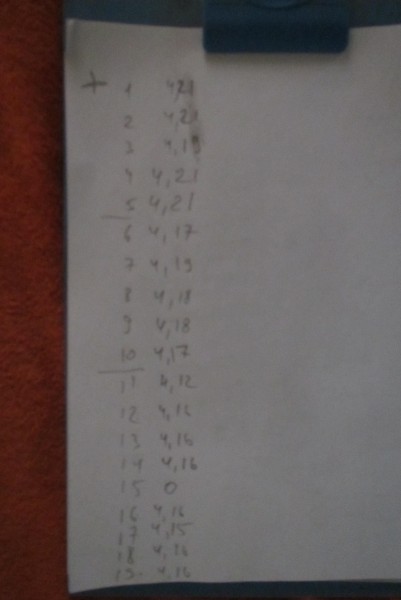 + 1 4,21
2 4,21
3 4,19
4 4,21
5 4,21
6 4,17
7 4,19
8 4,18
9 4,18
10 4,17
11 4,12
12 4,16
13 4,16
14 4,16
15 0
16 4,16
17 4,15
18 4,16
19 4,16